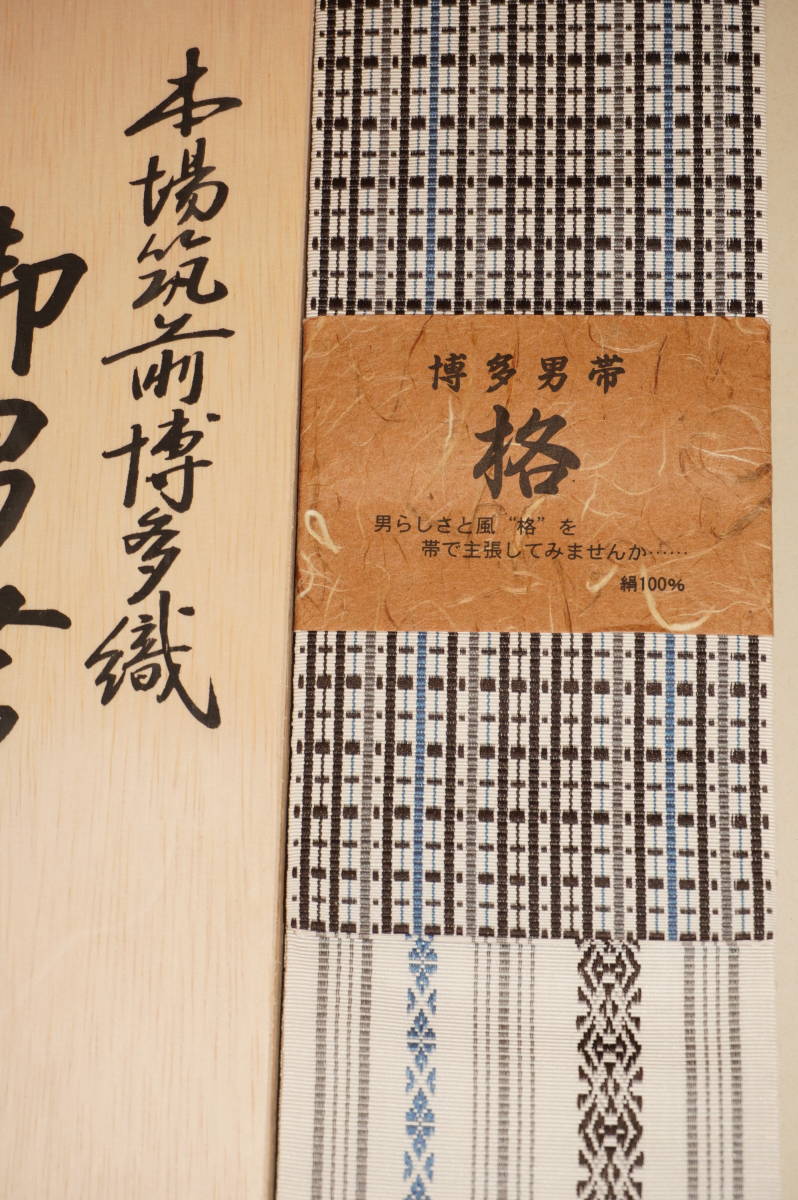 本場筑前博多織
御男帯
博多男帯
格
男らしさと風“格”を
帯で主張してみませんか……
絹100%